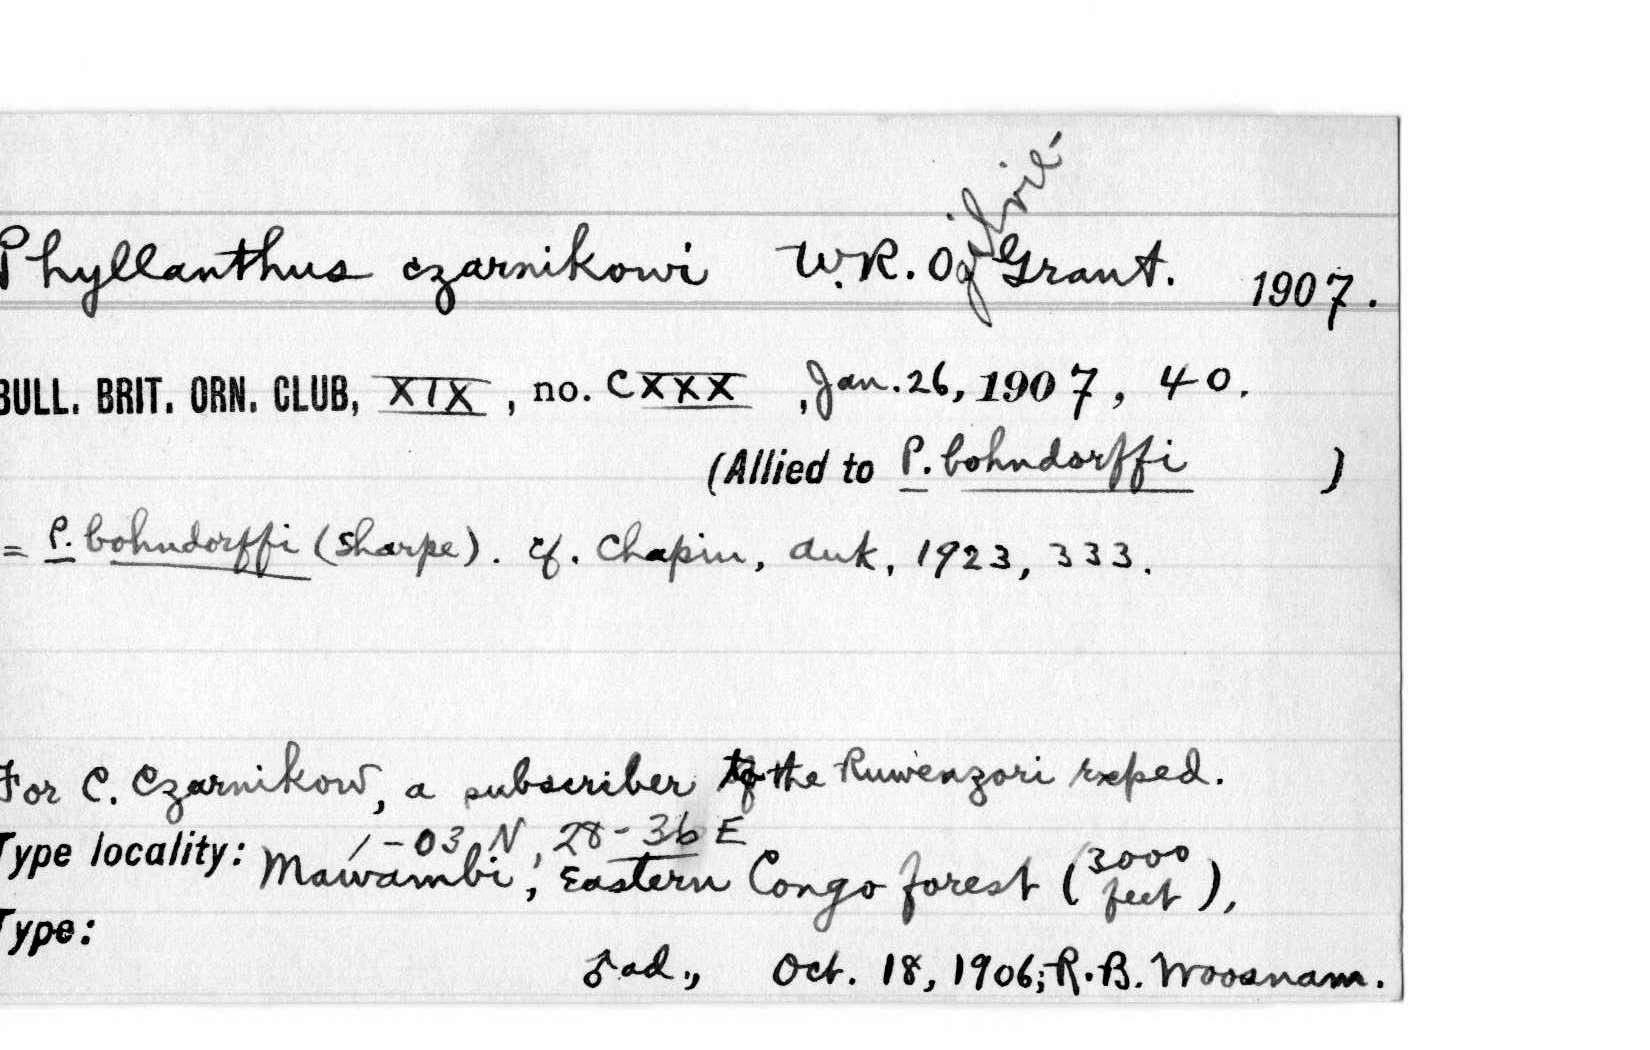 Phyllanthus czarnikowi W.R. Ogilvie-Grant. 1907.
BULL. BRIT. ORN. CLUB, XIX, no. CXXX, Jan. 26, 1907, 40.
(Allied to P. bohndorffi )
= P. bohndorffi (Sharpe). cf. Chapin, Auk, 1923, 333.
For C. Czarnikow, a subscriber to the Ruwenzori exped.
1-03 N, 28-36 E
Type locality: Mawambi, Eastern Congo forest (3000 feet),
Type:
♂ ad., Oct. 18, 1906; R.B. Woosnam.